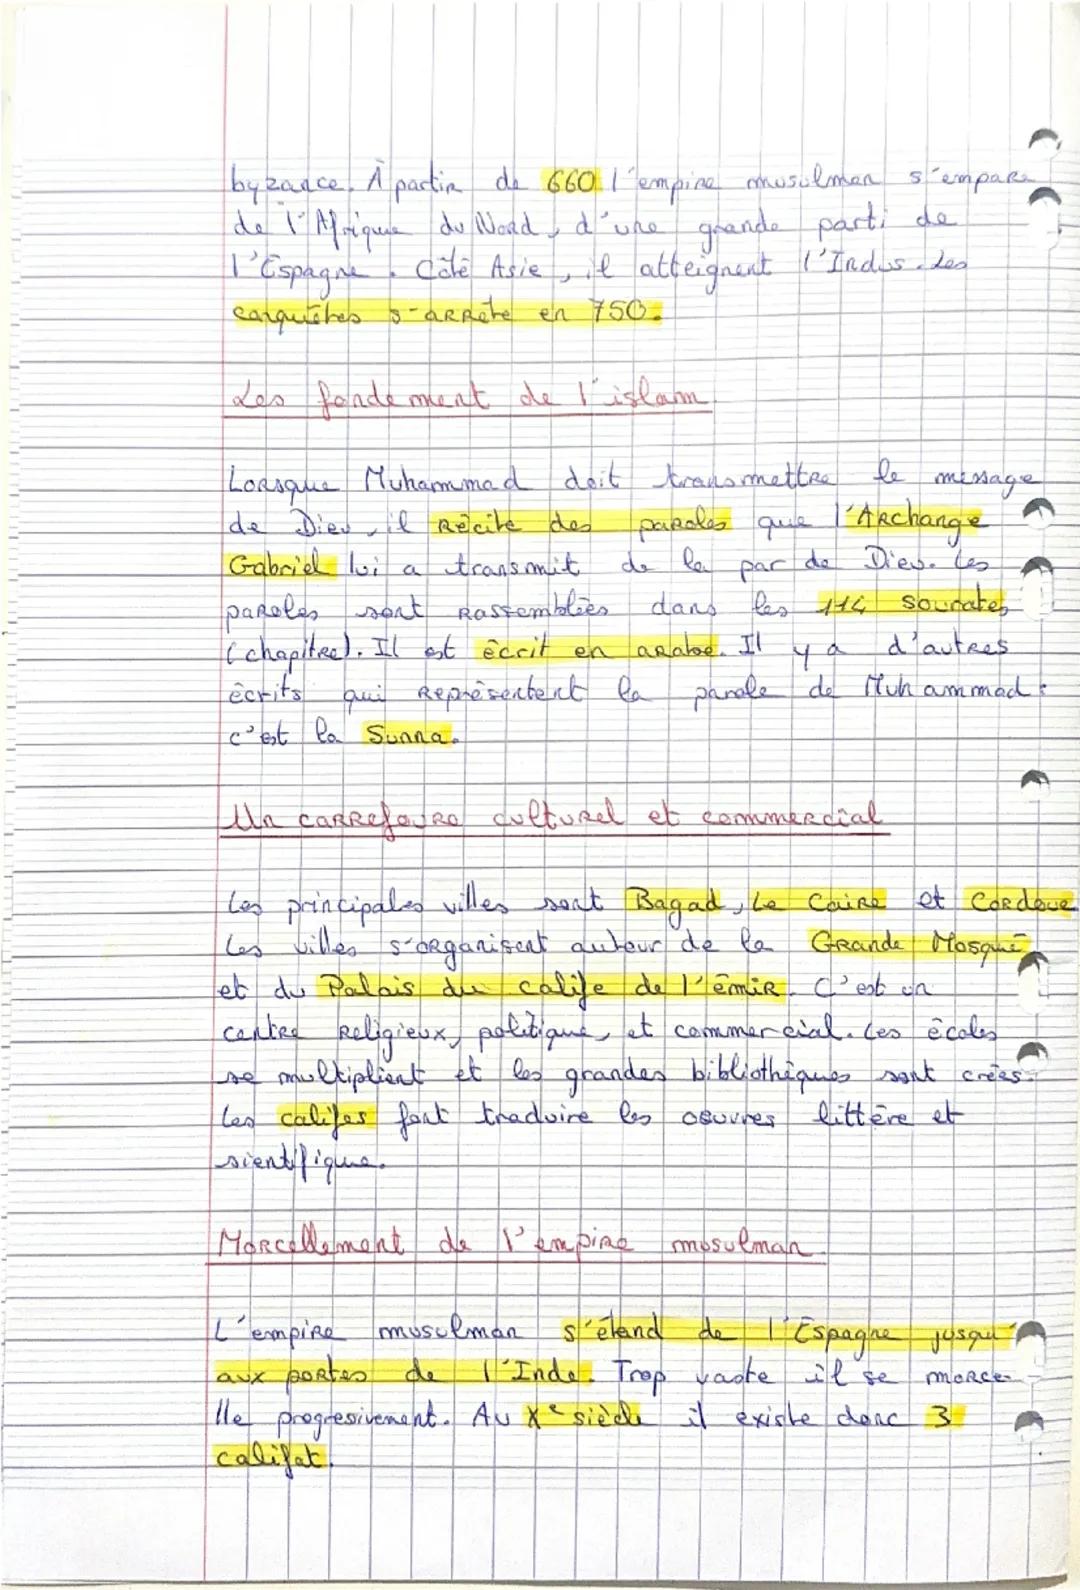 byzance. À partir de 660 l'empire musulman s'empare
de l'Afrique du Nord, d'une grande parti de
l'Espagne. Côté Asie, il atteignent l'Indus. Les
conquêtes s'arrête en 750.
Les fondement de l'islam
Lorsque Muhammad doit transmettre le message
de Dieu, il Récite des paroles que l'Archange
Gabriel lui a transmit de la par de Dieu. Les
paroles sont rassemblées dans les 114 sourates
(chapitre). Il est écrit en arabe. Il y a d'autres
écrits qui représentent la parole de Muhammad :
c'est la Sunna.
Un carrefoure culturel et commercial
Les principales villes sont Bagad, Le Caire et Cordoue
Les villes s'organisent autour de la Grande Mosqué
et du Palais du calife de l'émir. C'est un
centre religieux, politique, et commercial. Les écoles
se multiplient et les grandes bibliothèques sont crées.
Les califes font traduire les oeuvres littère et
sientifique.
Morcellement de l'empire musulman
L'empire musulman s'étend de l'Espagne jusqu'
aux portes de l'Inde. Trop vaste il se morce-
lle progresivement. Au Xe siècle il existe donc 3
califat.